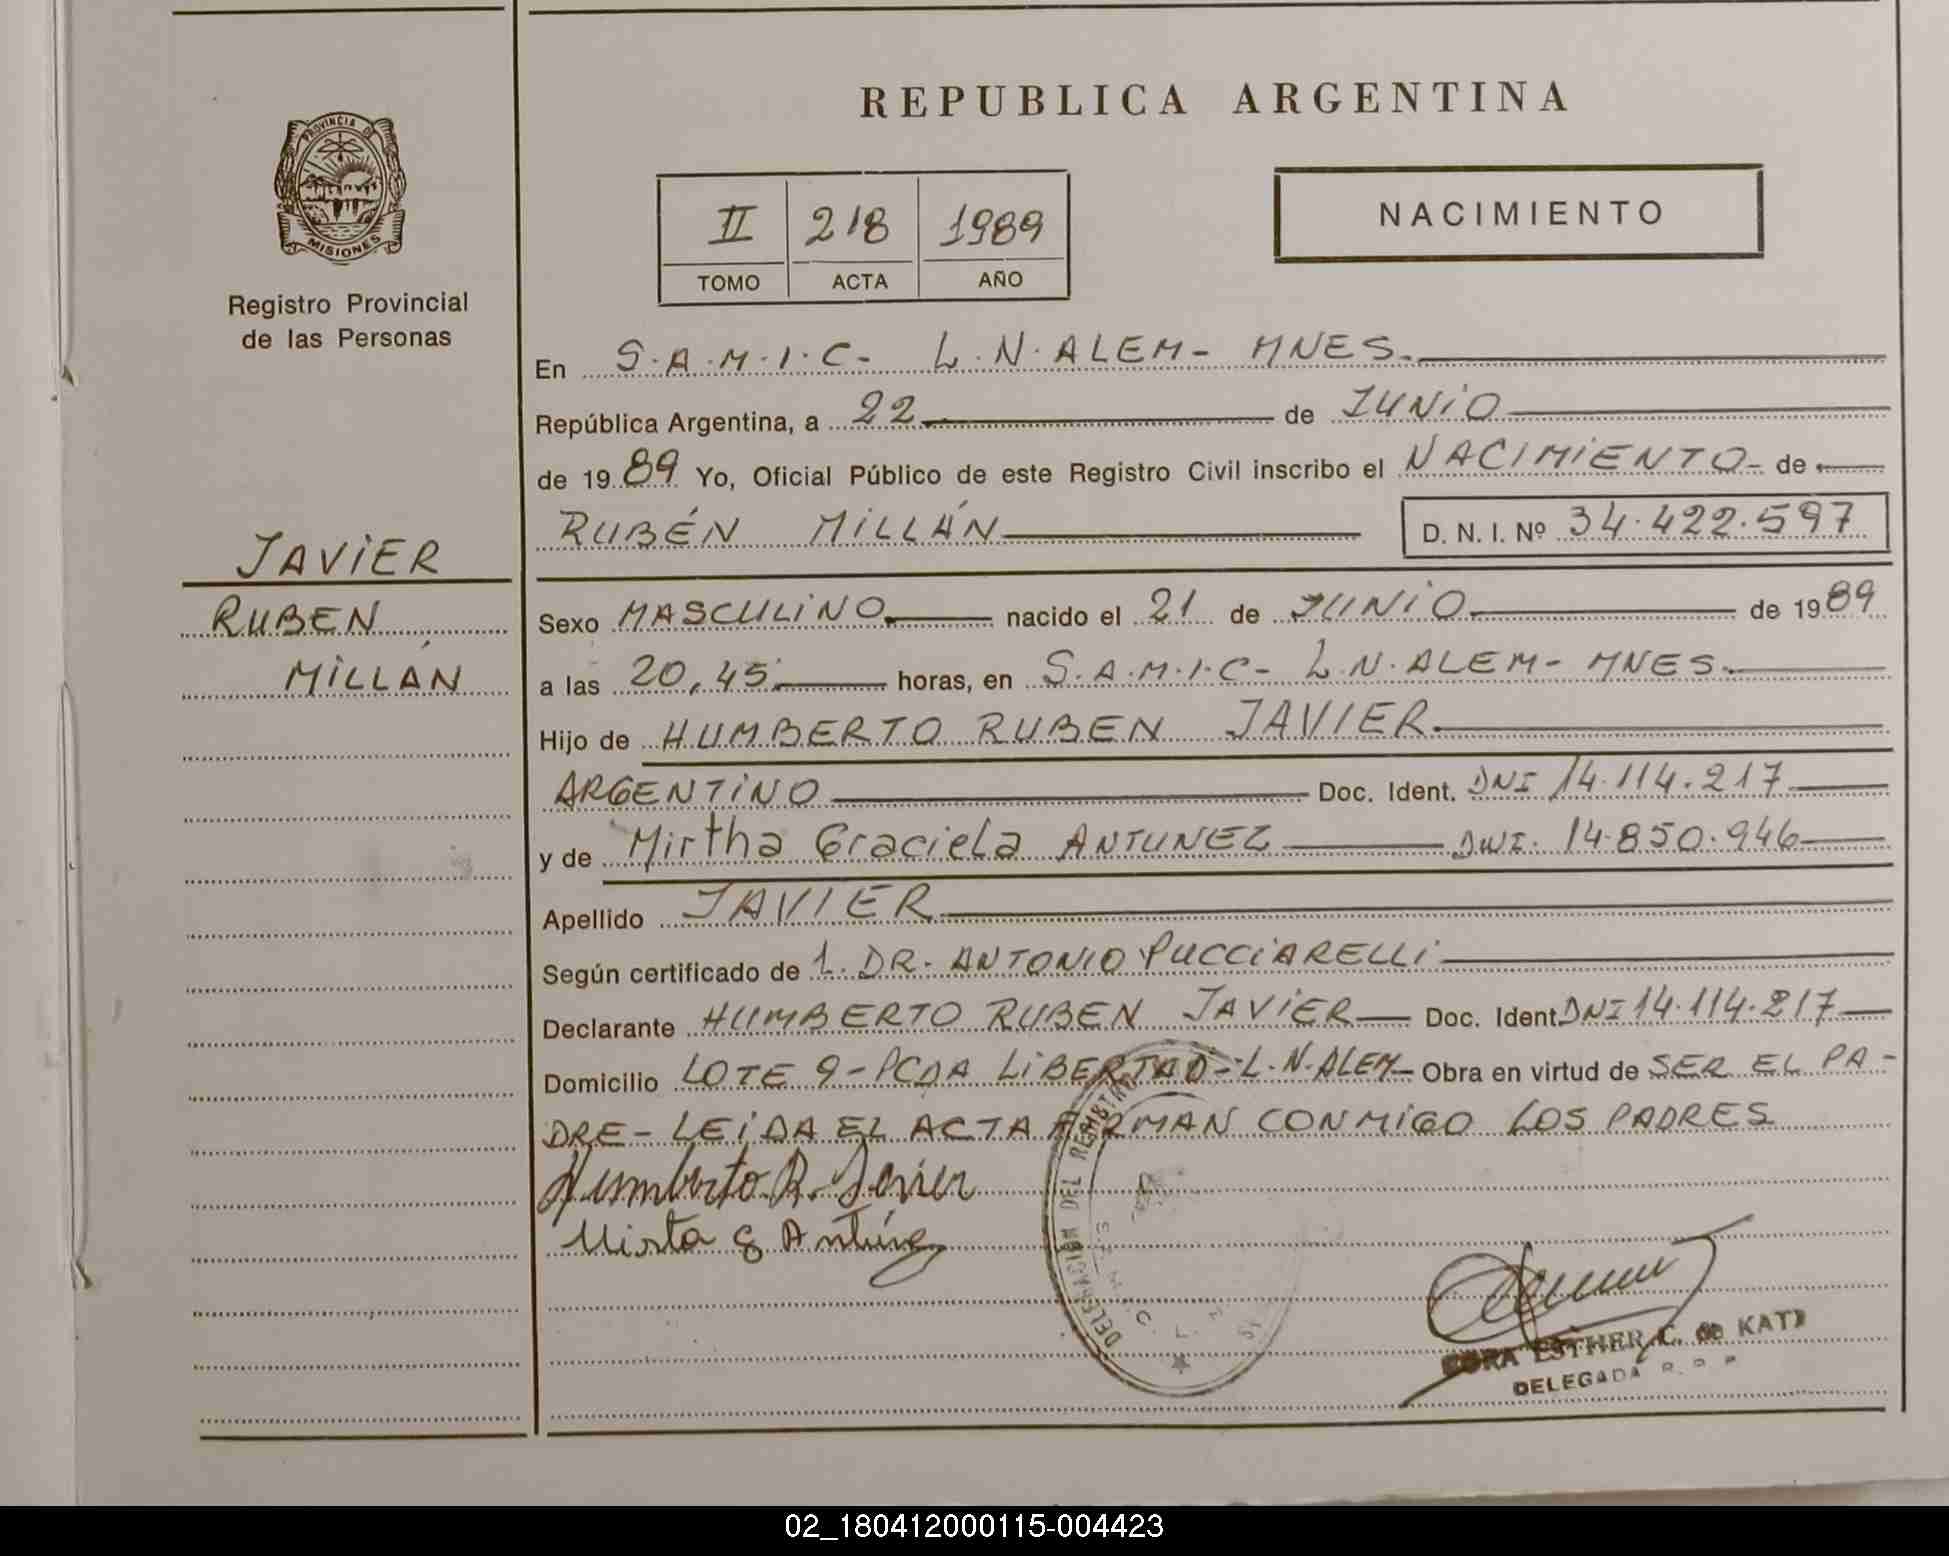 REPUBLICA ARGENTINA
PROVINCIA DE
MISIONES
Registro Provincial
de las Personas
II 218 1989
TOMO ACTA AÑO
NACIMIENTO
JAVIER
RUBEN
MILLÁN
En S.A.M.I.C- L.N.ALEM- MNES.
República Argentina, a 22 de JUNIO
de 1989 Yo, Oficial Público de este Registro Civil inscribo el NACIMIENTO- de
RUBÉN MILLÁN D. N. I. Nº 34.422.597
Sexo MASCULINO nacido el 21 de JUNIO de 1989
a las 20,45 horas, en S.A.M.I.C- L.N.ALEM- MNES.
Hijo de HUMBERTO RUBEN JAVIER
ARGENTINO Doc. Ident. DNI 14.114.217
y de Mirtha Graciela ANTUNEZ DNI. 14.850.946
Apellido JAVIER
Según certificado de 1. DR. ANTONIO PUCCIARELLI
Declarante HUMBERTO RUBEN JAVIER Doc. Ident DNI 14.114.217
Domicilio LOTE 9-PCDA LIBERTAD-L.N.ALEM Obra en virtud de SER EL PA-
DRE- LEIDA EL ACTA FIRMAN CONMIGO LOS PADRES
Humberto R. Javier
Mirta G Antúnez
DELEGACION DEL
ESTHER C. de
DELEGADA R. P. P.
02_180412000115-004423